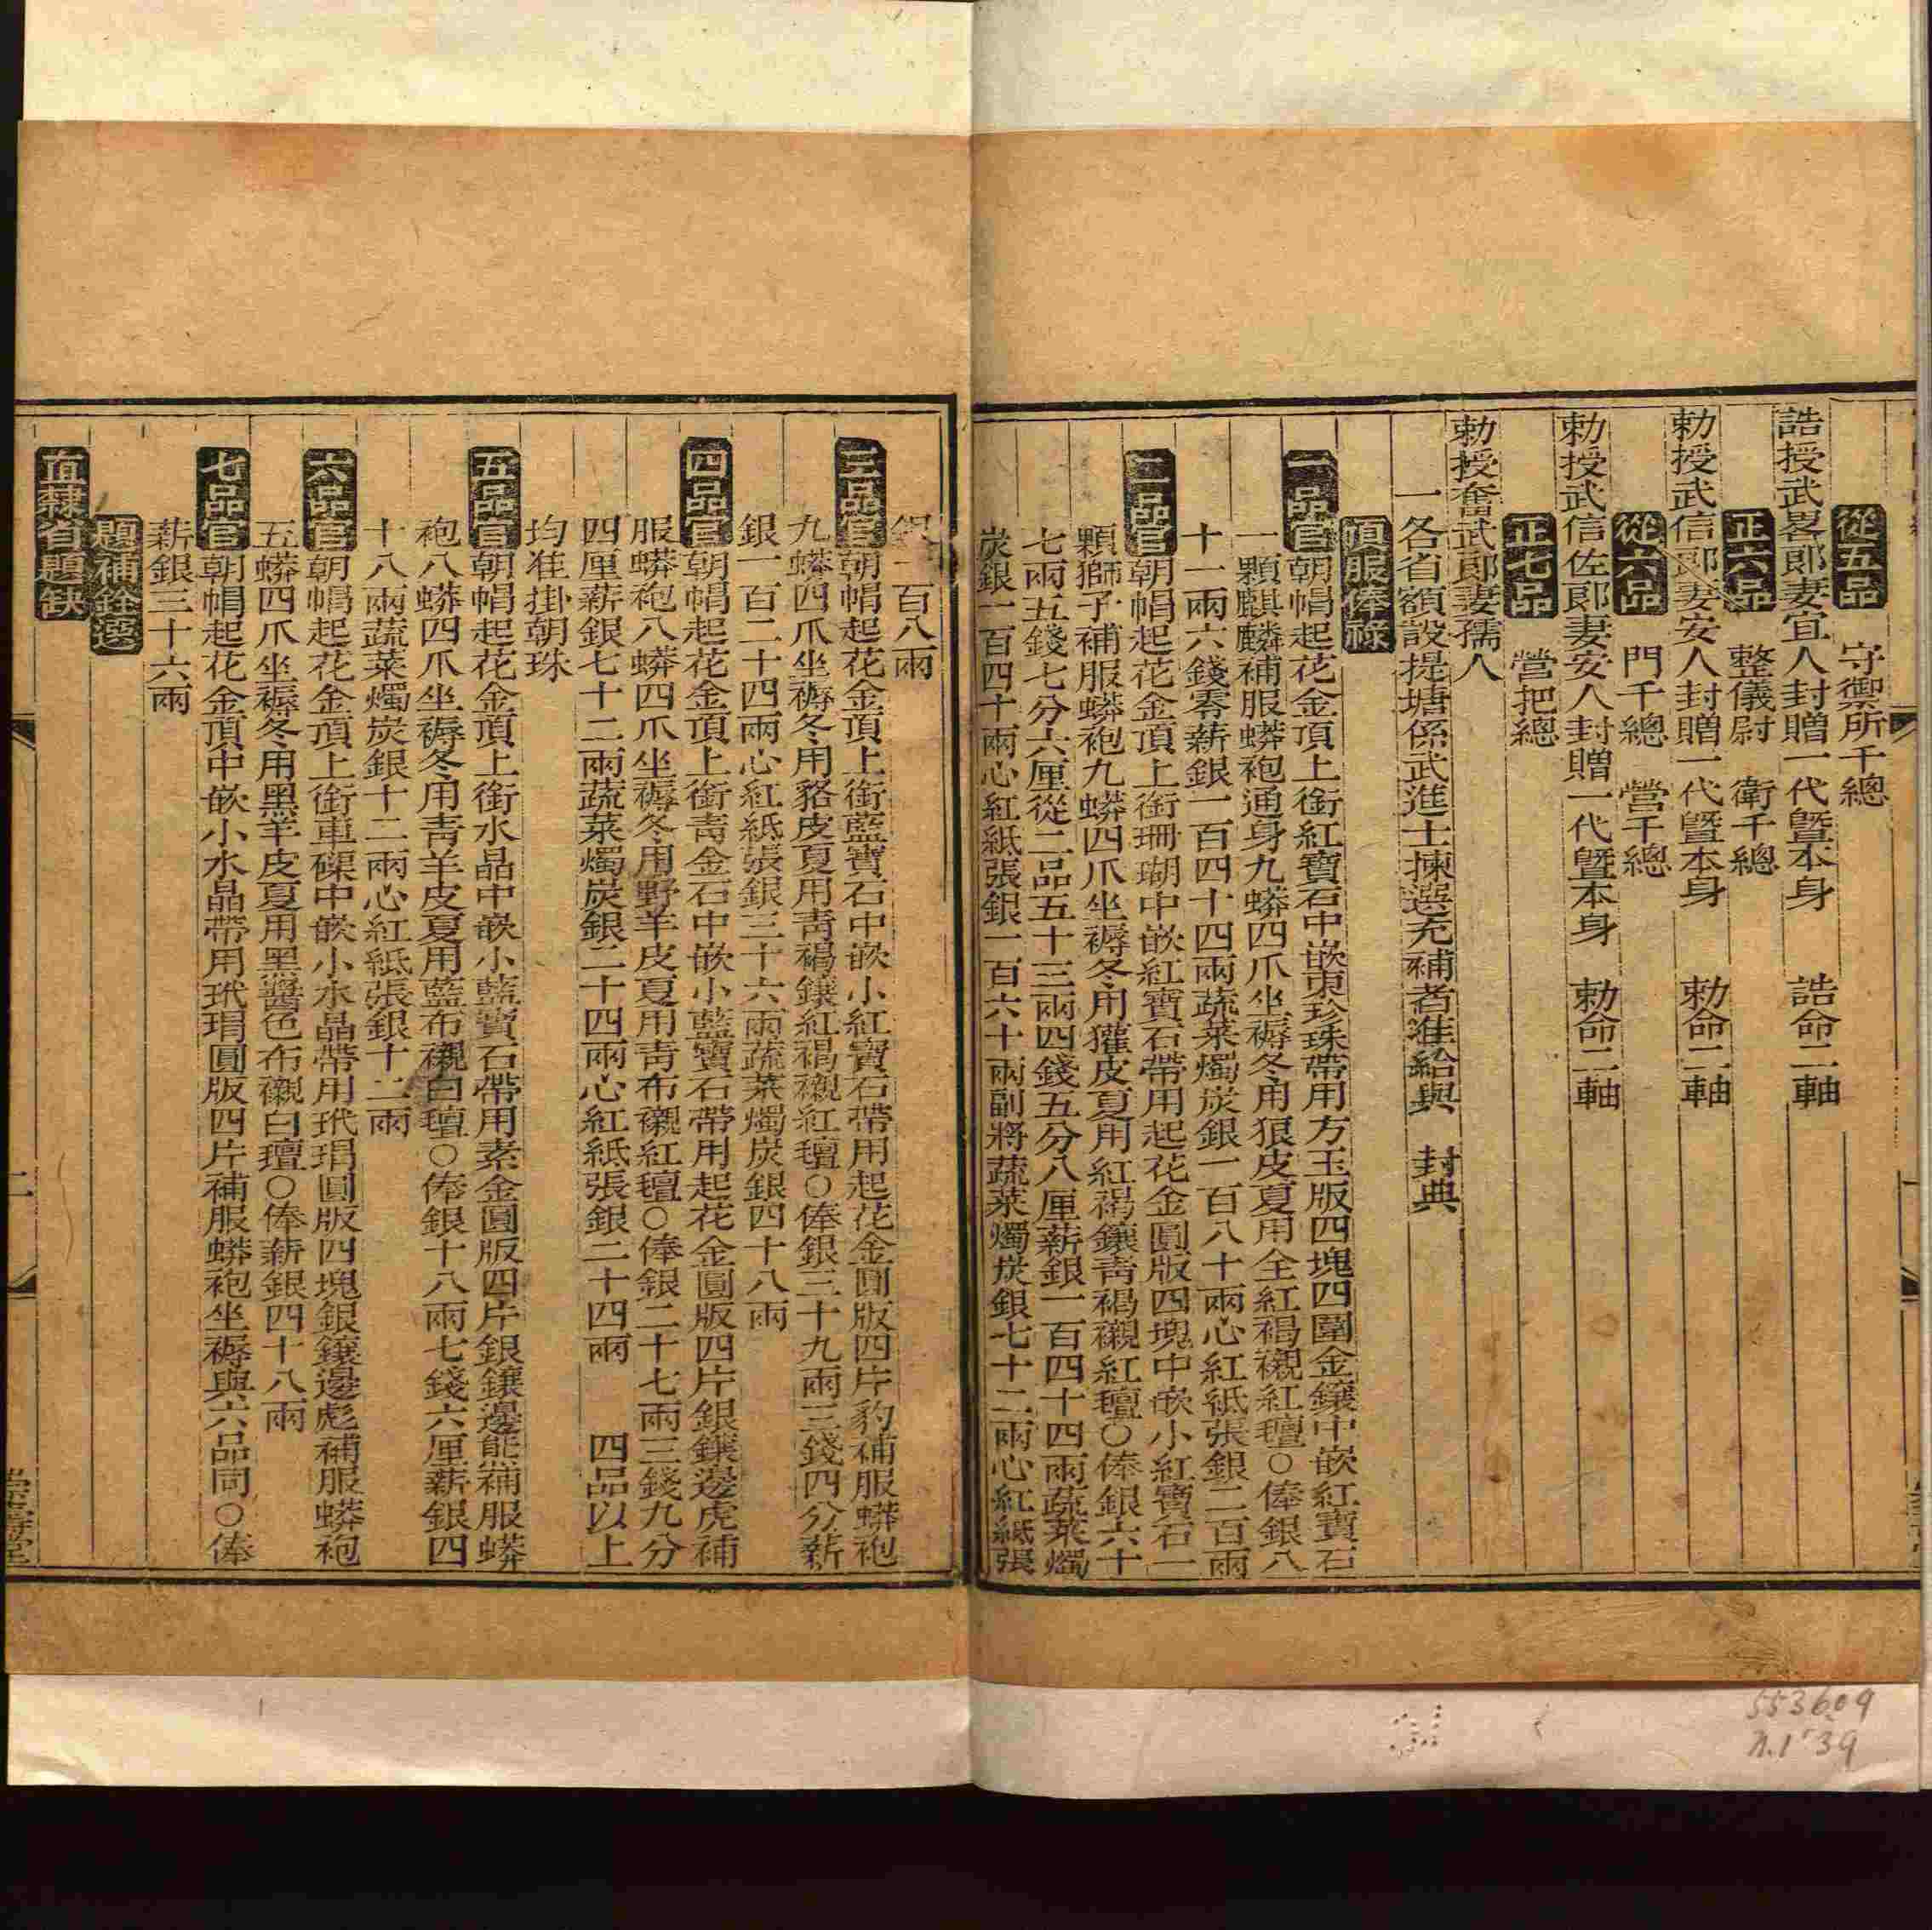 從五品　守禦所千總
誥授武畧郎妻宜人封贈一代曁本身　誥命二軸
正六品　整儀尉　衛千總
勅授武信郎妻安人封贈一代曁本身　勅命二軸
從六品　門千總　營千總
勅授武信佐郎妻安人封贈一代曁本身　勅命二軸
正七品　營把總
勅授奮武郎妻孺人
一各省額設提塘係武進士揀選充補者准給與　封典
頂服俸祿
一品官朝帽起花金頂上銜紅寶石中嵌東珍珠帶用方玉版四塊四圍金鑲中嵌紅寶石
一顆麒麟補服蟒袍通身九蟒四爪坐褥冬用狼皮夏用全紅褐襯紅氊○俸銀八
十一兩六錢零薪銀一百四十四兩蔬菜燭炭銀一百八十兩心紅紙張銀二百兩
二品官朝帽起花金頂上銜珊瑚中嵌紅寶石帶用起花金圓版四塊中嵌小紅寶石一
顆獅子補服蟒袍九蟒四爪坐褥冬用獾皮夏用紅褐鑲靑褐襯紅氊○俸銀六十
七兩五錢七分六厘從二品五十三兩四錢五分八厘薪銀一百四十四兩蔬菜燭
炭銀一百四十兩心紅紙張銀一百六十兩副將蔬菜燭炭銀七十二兩心紅紙張
銀一百八兩
三品官朝帽起花金頂上銜藍寶石中嵌小紅寶石帶用起花金圓版四片豹補服蟒袍
九蟒四爪坐褥冬用貉皮夏用靑褐鑲紅褐襯紅氊○俸銀三十九兩三錢四分薪
銀一百二十四兩心紅紙張銀三十六兩蔬菜燭炭銀四十八兩
四品官朝帽起花金頂上銜靑金石中嵌小藍寶石帶用起花金圓版四片銀鑲邊虎補
服蟒袍八蟒四爪坐褥冬用野羊皮夏用靑布襯紅氊○俸銀二十七兩三錢九分
四厘薪銀七十二兩蔬菜燭炭銀二十四兩心紅紙張銀二十四兩　四品以上
均准掛朝珠
五品官朝帽起花金頂上銜水晶中嵌小藍寶石帶用素金圓版四片銀鑲邊熊補服蟒
袍八蟒四爪坐褥冬用靑羊皮夏用藍布襯白氊○俸銀十八兩七錢六厘薪銀四
十八兩蔬菜燭炭銀十二兩心紅紙張銀十二兩
六品官朝帽起花金頂上銜車磲中嵌小水晶帶用玳瑁圓版四塊銀鑲邊彪補服蟒袍
五蟒四爪坐褥冬用黑羊皮夏用黑醬色布襯白氊○俸薪銀四十八兩
七品官朝帽起花金頂中嵌小水晶帶用玳瑁圓版四片補服蟒袍坐褥與六品同○俸
薪銀三十六兩
題補銓選
直隸省題缺
二
553609
n.1'39